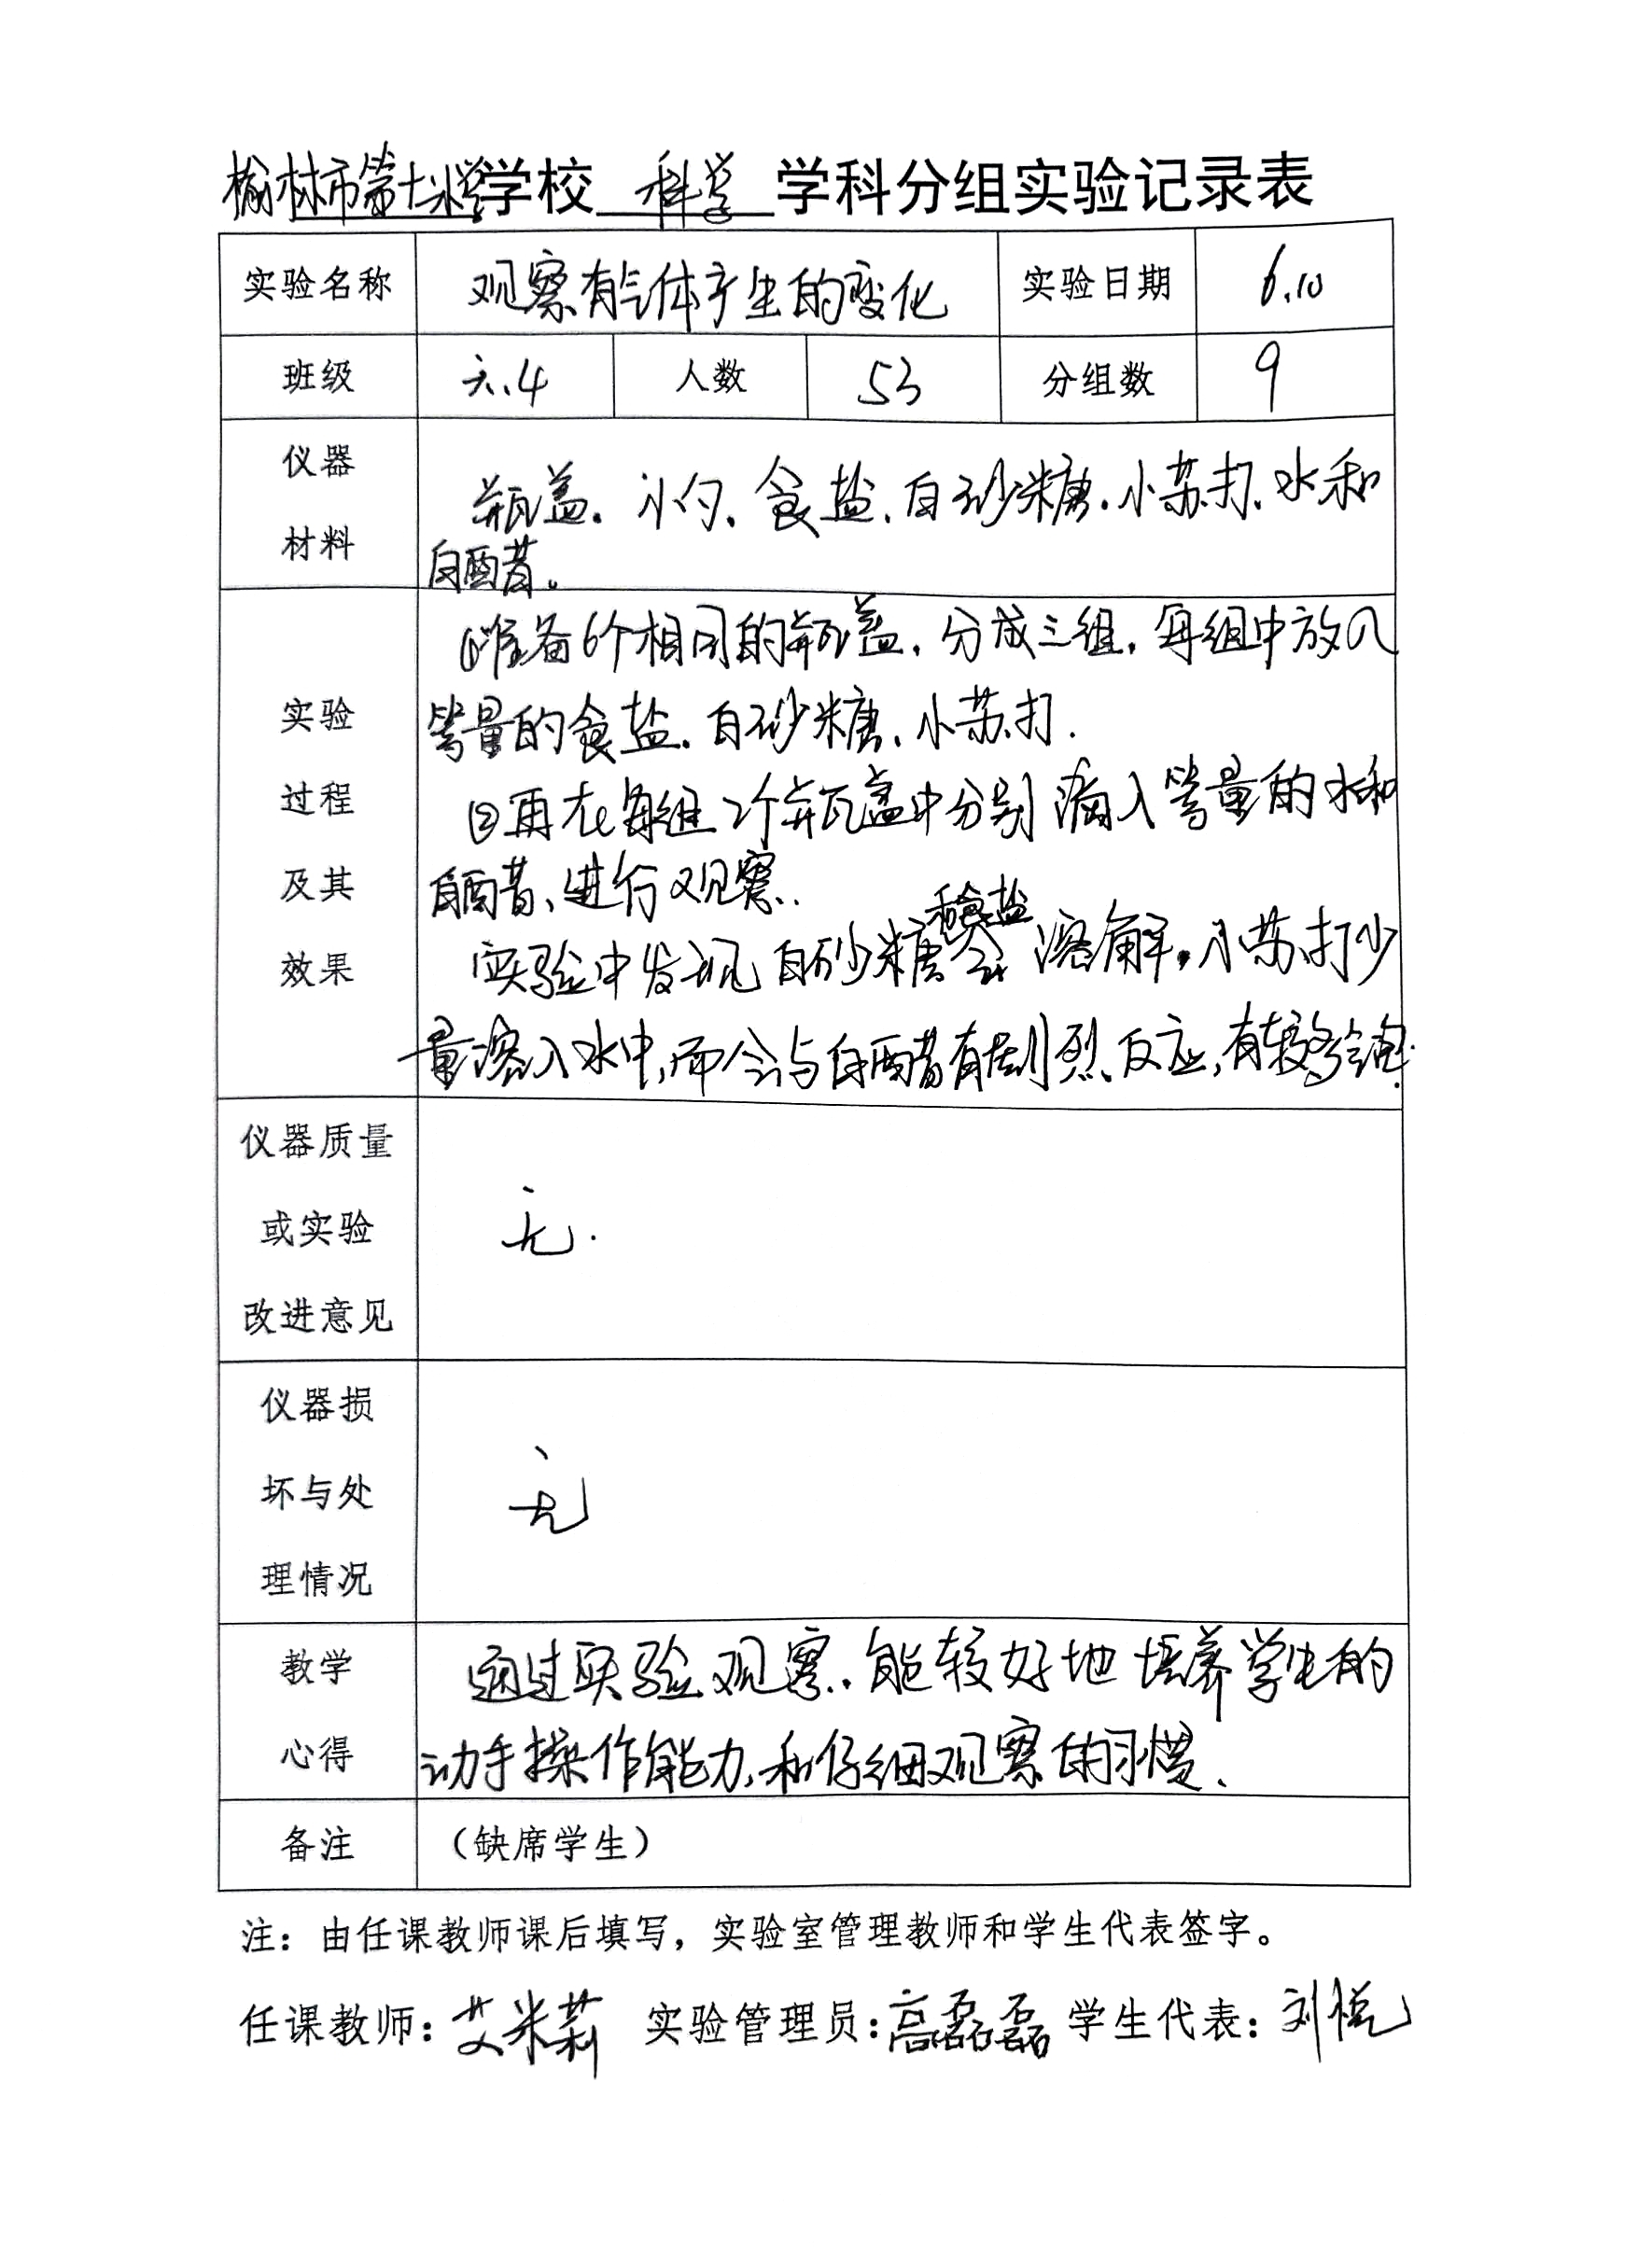 榆林市第十小学学校 科学 学科分组实验记录表
实验名称 观察有气体产生的变化 实验日期 6.10
班级 六.4 人数 53 分组数 9
仪器
材料
瓶盖、小勺、食盐、白砂糖、小苏打、水和
白醋。
实验
过程
及其
效果
①准备6个相同的瓶盖,分成三组,每组中放入
等量的食盐、白砂糖、小苏打.
②再在每组2个瓶盖中分别滴入等量的水和
白醋、进行观察.
实验中发现白砂糖和食盐会溶解,小苏打少
量溶入水中,而会与白醋有剧烈反应,有较多气泡.
仪器质量
或实验
改进意见
无.
仪器损
坏与处
理情况
无
教学
心得
通过实验观察,能较好地培养学生的
动手操作能力,和仔细观察的习惯、
备注 （缺席学生）
注：由任课教师课后填写，实验室管理教师和学生代表签字。
任课教师：艾米莉 实验管理员：高磊磊 学生代表：刘悦